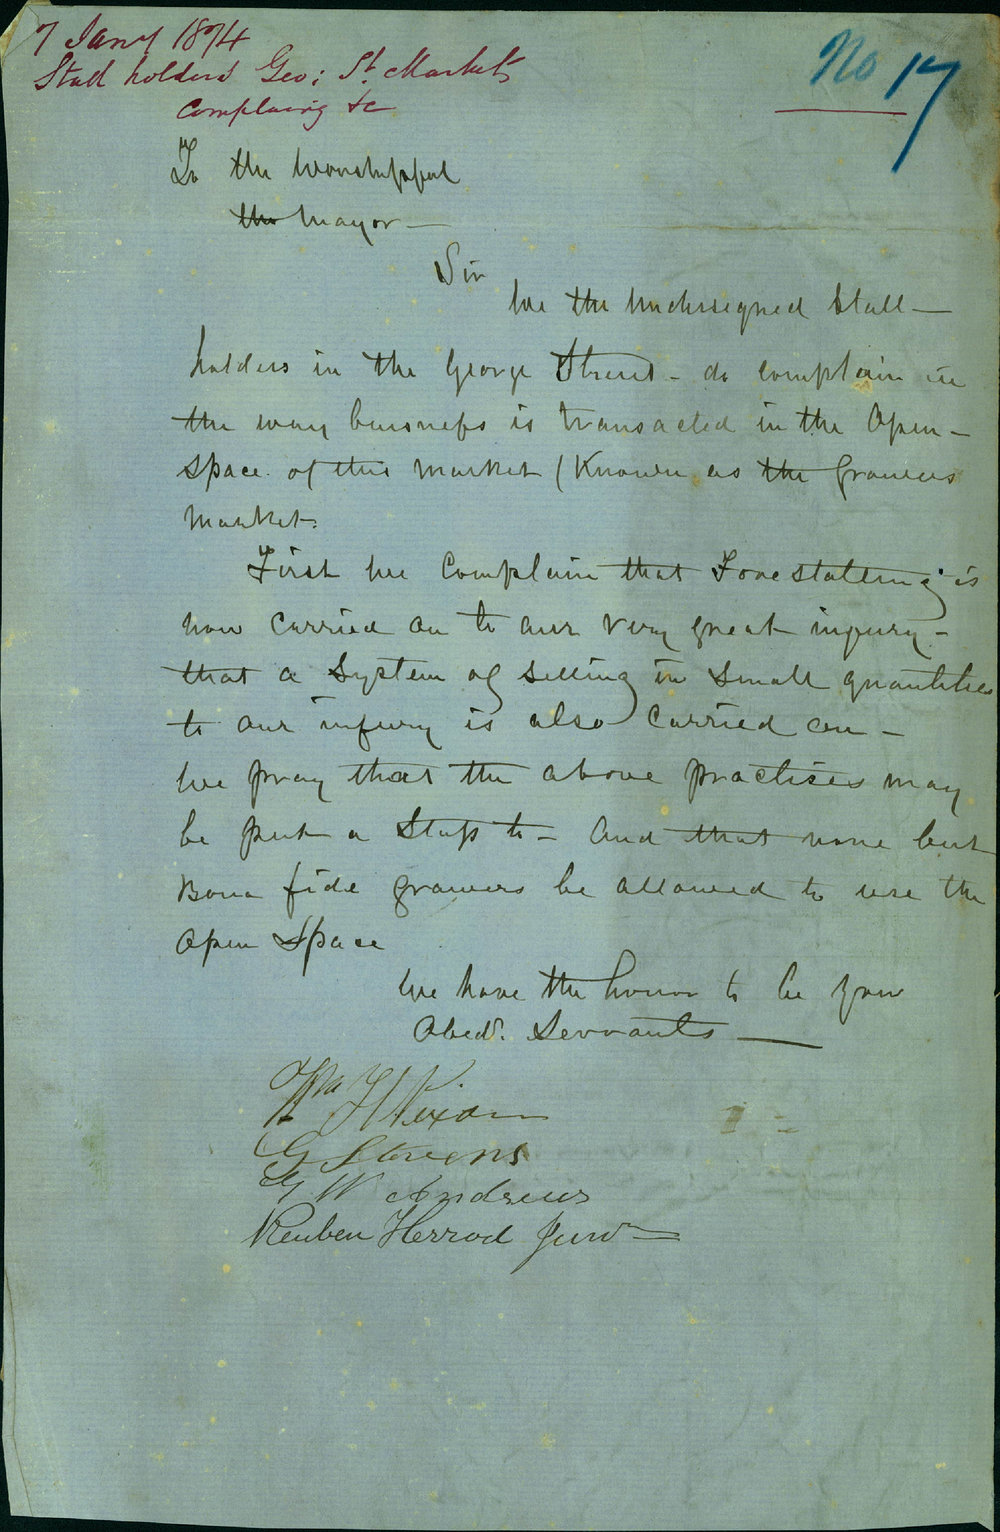 7 Jany 1874
Stall holders Geo: St. Markets
Complaing &c
No 17
To the Worshipfull
the Mayor —
Sir
We the Undersigned Stall —
holders in the George Street - do complain in
the way buisness is transacted in the Open —
Space of this Market (Known as the Growers
Market.
First We Complain that Forestalling is
now carried on to our very great injury —
that a System of selling in small quantities
to our injury is also carried on —
We pray that the above practises may
be put a Stop to — And that none but
Bona fide growers be allowed to use the
Open Space
We have the honor to be your
Obedt. Servants —
Wm H Nixon
G Stevens
G W Andrews
Reuben Herrod Junr